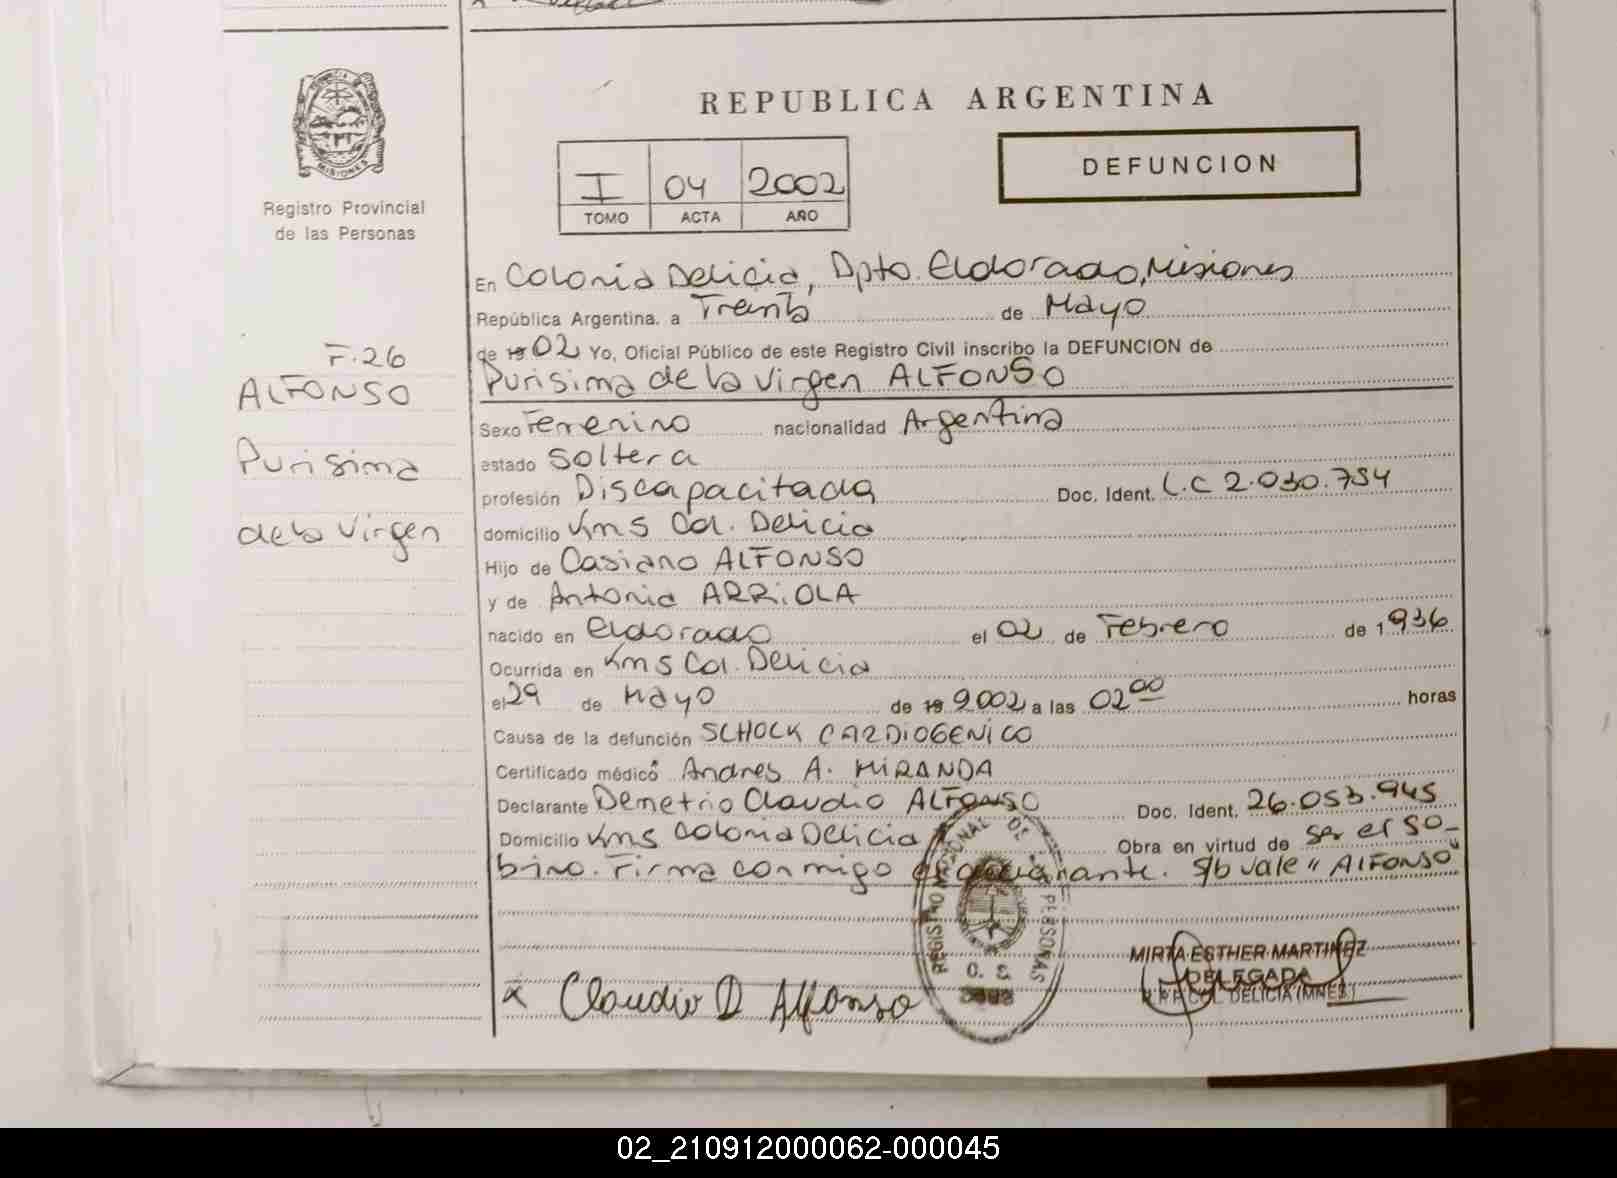 REPUBLICA ARGENTINA
DEFUNCION
I 04 2002
TOMO ACTA AÑO
MISIONES
Registro Provincial
de las Personas
F. 26
ALFONSO
Purisima
de la Virgen
En Colonia Delicia, Dpto. Eldorado, Misiones
República Argentina, a Treinta de Mayo
de 19 02 Yo, Oficial Público de este Registro Civil inscribo la DEFUNCION de
Purisima de la Virgen ALFONSO
Sexo Femenino nacionalidad Argentina
estado Soltera
profesión Discapacitada Doc. Ident. L.C 2.030.754
domicilio Km 5 Col. Delicia
Hijo de Casiano ALFONSO
y de Antonia ARRiOLA
nacido en Eldorado el 02 de Febrero de 1936
Ocurrida en Km 5 Col. Delicia
el 29 de Mayo de 19 2002 a las 02 00 horas
Causa de la defunción SCHOCK CARDiOGENiCO
Certificado médico Andres A. MiRANDA
Declarante Demetrio Claudio ALFONSO Doc. Ident. 26.053.945
Domicilio Km 5 Colonia Delicia Obra en virtud de ser el so-
brino. Firma conmigo el declarante. S/b vale "ALFONSO"
REGISTRO NACIONAL DE LAS PERSONAS
O. S.
x Claudio D Alfonso
MIRTA ESTHER MARTINEZ
DELEGADA
R.P.P. COL. DELICIA (MNES.)
02_210912000062-000045